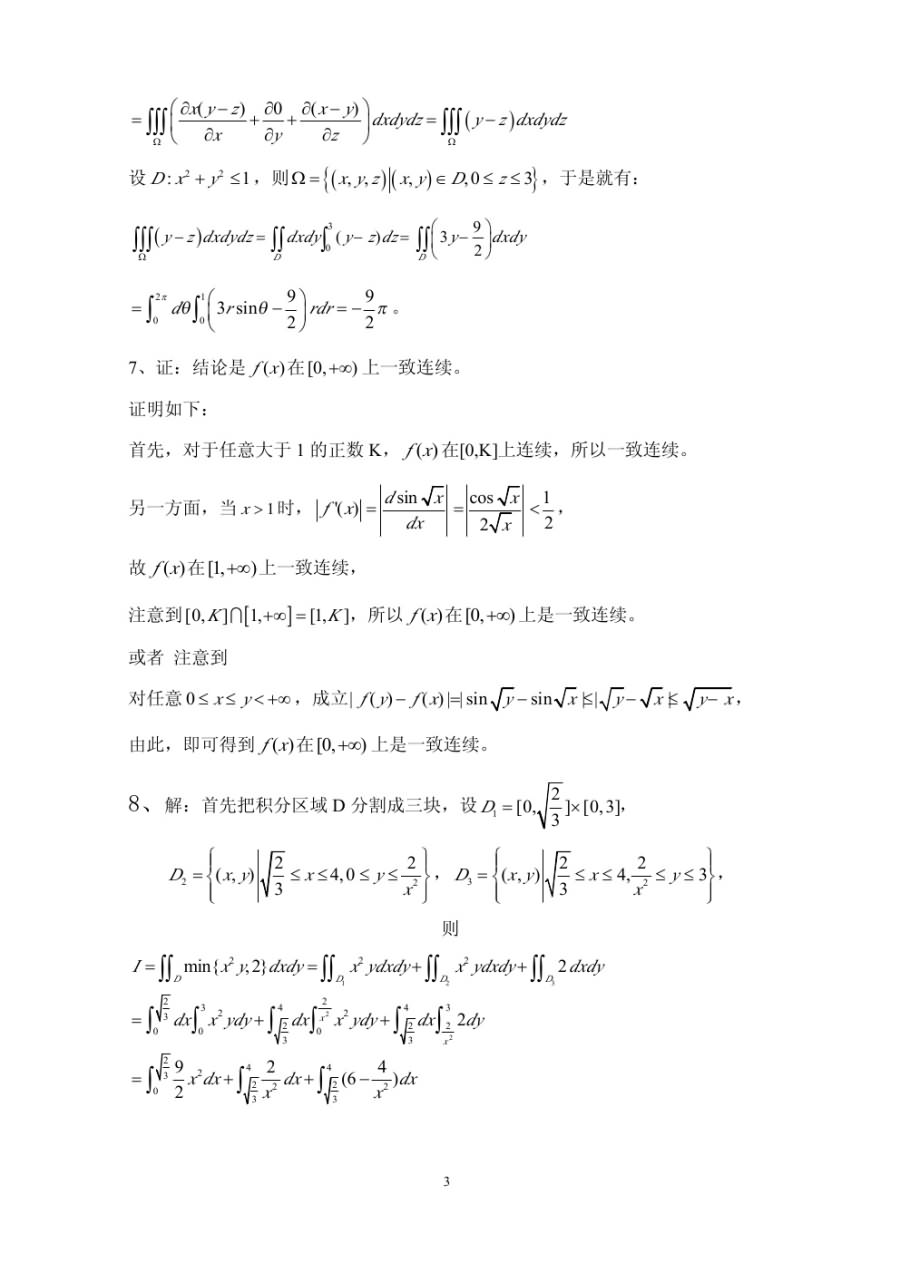 = ∭_Ω ( ∂x(y−z)/∂x + ∂0/∂y + ∂(x−y)/∂z ) dxdydz = ∭_Ω (y−z)dxdydz
设 D: x² + y² ≤1，则Ω = {(x, y, z)|(x, y)∈ D, 0 ≤ z ≤ 3}，于是就有：
∭_Ω (y−z)dxdydz = ∬_D dxdy∫_0^3 (y−z)dz = ∬_D (3y − 9/2)dxdy
= ∫_0^{2π} dθ∫_0^1 (3r sinθ − 9/2) rdr = −9/2 π 。
7、证：结论是 f(x)在[0,+∞) 上一致连续。
证明如下：
首先，对于任意大于 1 的正数 K， f(x) 在[0,K]上连续，所以一致连续。
另一方面，当 x > 1 时，|f'(x)| = |d sin √x / dx| = |cos √x / 2√x| < 1/2，
故 f(x)在[1,+∞)上一致连续，
注意到[0, K]∩[1,+∞] = [1, K]，所以 f(x)在[0,+∞) 上是一致连续。
或者 注意到
对任意 0 ≤ x ≤ y < +∞ ，成立| f(y) − f(x) |=| sin √y − sin √x |≤| √y − √x |≤ √(y−x)，
由此，即可得到 f(x)在[0,+∞) 上是一致连续。
8、解：首先把积分区域 D 分割成三块，设 D₁ = [0, √(2/3)]×[0,3]，
D₂ = {(x, y)| √(2/3) ≤ x ≤ 4, 0 ≤ y ≤ 2/x²}， D₃ = {(x, y)| √(2/3) ≤ x ≤ 4, 2/x² ≤ y ≤ 3}，
则
I = ∬_D min{x² y, 2}dxdy = ∬_{D₁} x² ydxdy + ∬_{D₂} x² ydxdy + ∬_{D₃} 2dxdy
= ∫_0^{√(2/3)} dx∫_0^3 x² ydy + ∫_{√(2/3)}^4 dx∫_0^{2/x²} x² ydy + ∫_{√(2/3)}^4 dx∫_{2/x²}^3 2dy
= ∫_0^{√(2/3)} 9/2 x² dx + ∫_{√(2/3)}^4 2/x² dx + ∫_{√(2/3)}^4 (6 − 4/x²)dx
3